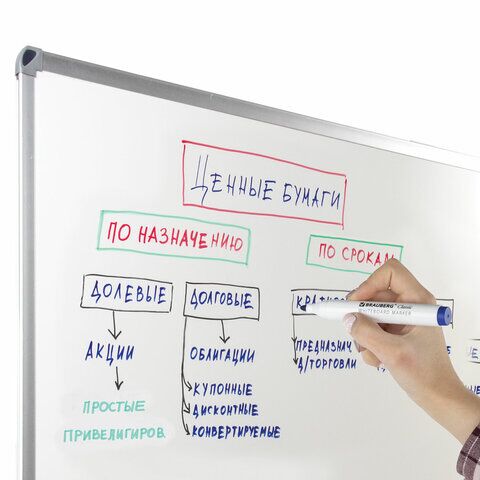 ЦЕННЫЕ БУМАГИ
ПО НАЗНАЧЕНИЮ
ПО СРОКАМ
ДОЛЕВЫЕ
ДОЛГОВЫЕ
АКЦИИ
ОБЛИГАЦИИ
ПРОСТЫЕ
ПРИВЕЛИГИРОВ.
КУПОННЫЕ
ДИСКОНТНЫЕ
КОНВЕРТИРУЕМЫЕ
ПРЕДНАЗНАЧ
Д/ТОРГОВЛИ
BRAUBERG Classic
WHITEBOARD MARKER